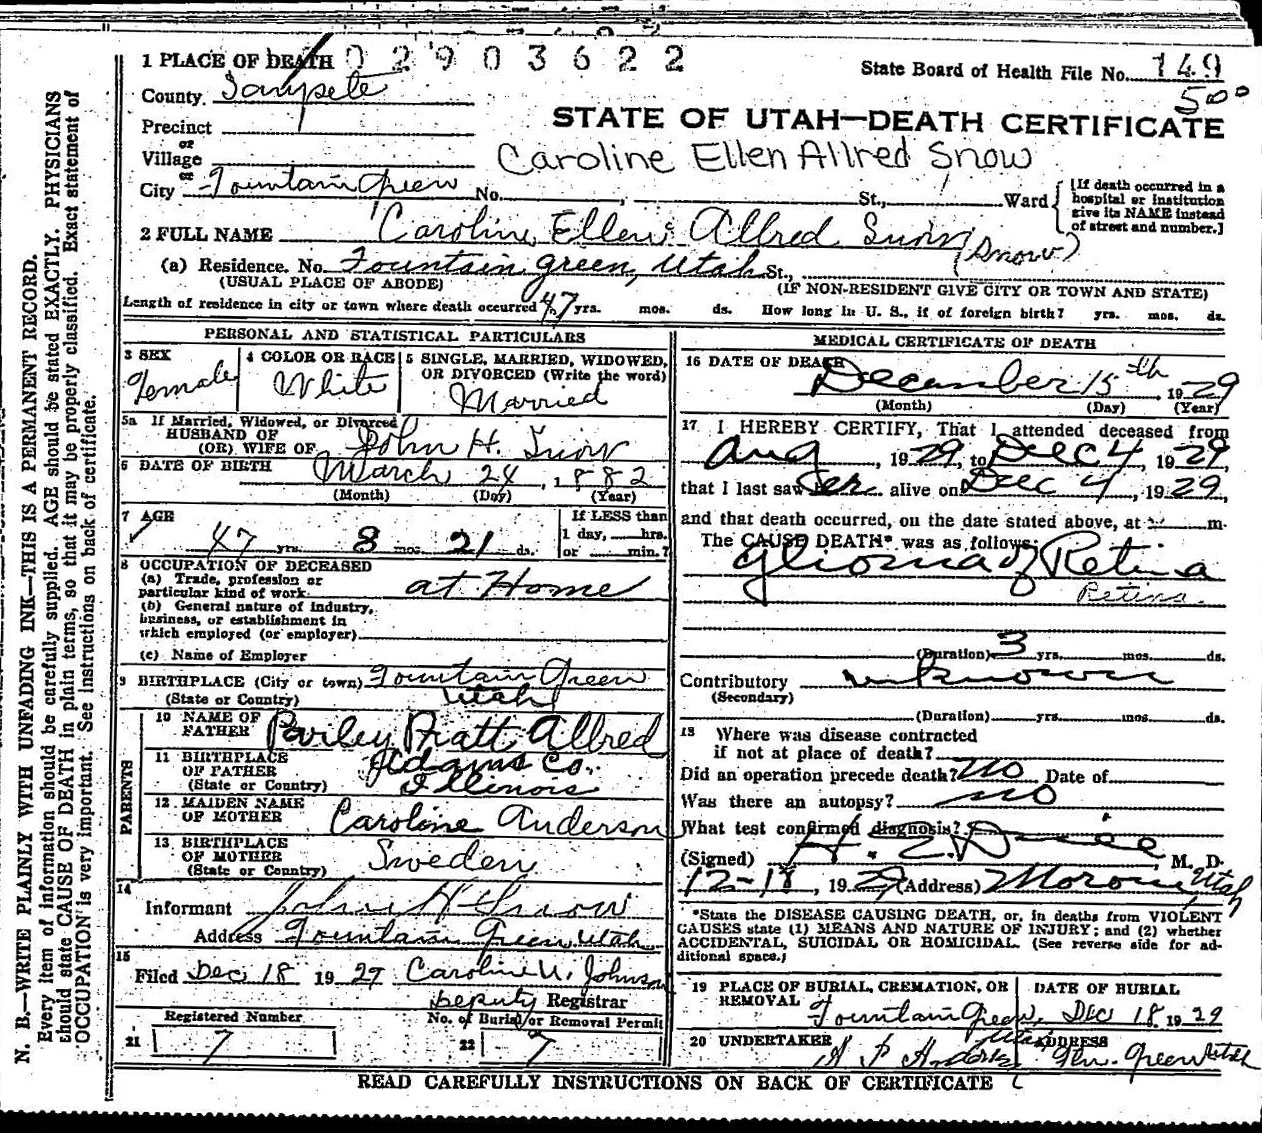 02903622
1 PLACE OF DEATH
State Board of Health File No. 149
500
County. Sanpete
STATE OF UTAH—DEATH CERTIFICATE
Precinct
or
Village
Caroline Ellen Allred Snow
or
City Fountain Green No. St., Ward
[If death occurred in a
hospital or institution
give its NAME instead
of street and number.]
2 FULL NAME Caroline Ellen Allred Snow
(Snow)
(a) Residence. No. Fountain green, Utah St.,
(USUAL PLACE OF ABODE) (IF NON-RESIDENT GIVE CITY OR TOWN AND STATE)
Length of residence in city or town where death occurred 47 yrs. mos. ds. How long in U. S., if of foreign birth? yrs. mos. ds.
PERSONAL AND STATISTICAL PARTICULARS
3 SEX
Female
4 COLOR OR RACE
White
5 SINGLE, MARRIED, WIDOWED,
OR DIVORCED (Write the word)
Married
5a If Married, Widowed, or Divorced
HUSBAND OF
(OR) WIFE OF John H. Snow
6 DATE OF BIRTH March 24, 1882
(Month) (Day) (Year)
7 AGE
47 yrs. 8 mos. 21 ds.
If LESS than
1 day, hrs.
or min.?
8 OCCUPATION OF DECEASED
(a) Trade, profession or
particular kind of work. at Home
(b) General nature of industry,
business, or establishment in
which employed (or employer)
(c) Name of Employer
9 BIRTHPLACE (City or town) Fountain Green
(State or Country) Utah
PARENTS
10 NAME OF
FATHER Parley Pratt Allred
11 BIRTHPLACE
OF FATHER
(State or Country)
Adams Co.
Illinois
12 MAIDEN NAME
OF MOTHER Caroline Anderson
13 BIRTHPLACE
OF MOTHER
(State or Country) Sweden
14
Informant John H Snow
Address Fountain Green, Utah
15
Filed Dec 18 1929 Caroline N. Johnson
Deputy Registrar
Registered Number
21 7
No. of Burial or Removal Permit
22 7
MEDICAL CERTIFICATE OF DEATH
16 DATE OF DEATH
December 15th, 1929
(Month) (Day) (Year)
17 I HEREBY CERTIFY, That I attended deceased from
Aug, 1929, to Dec 4 1929,
that I last saw her alive on Dec 4, 1929,
and that death occurred, on the date stated above, at m.
The CAUSE DEATH* was as follows:
Glioma of Retina
Retina.
(Duration) 3 yrs. mos. ds.
Contributory unknown
(Secondary)
(Duration) yrs. mos. ds.
18 Where was disease contracted
if not at place of death?
Did an operation precede death? No Date of
Was there an autopsy? no
What test confirmed diagnosis?
(Signed) H. M. D.
12-18, 1929 (Address) Moroni, Utah
*State the DISEASE CAUSING DEATH, or, in deaths from VIOLENT
CAUSES state (1) MEANS AND NATURE OF INJURY; and (2) whether
ACCIDENTAL, SUICIDAL OR HOMICIDAL. (See reverse side for ad-
ditional space.)
19 PLACE OF BURIAL, CREMATION, OR
REMOVAL
Fountain Green,
Utah
DATE OF BURIAL
Dec 18 1929
20 UNDERTAKER
ADDRESS
Ftn. Green Utah
READ CAREFULLY INSTRUCTIONS ON BACK OF CERTIFICATE
N. B.—WRITE PLAINLY WITH UNFADING INK—THIS IS A PERMANENT RECORD.
Every item of information should be carefully supplied. AGE should be stated EXACTLY. PHYSICIANS
should state CAUSE OF DEATH in plain terms, so that it may be properly classified. Exact statement of
OCCUPATION is very important. See instructions on back of certificate.